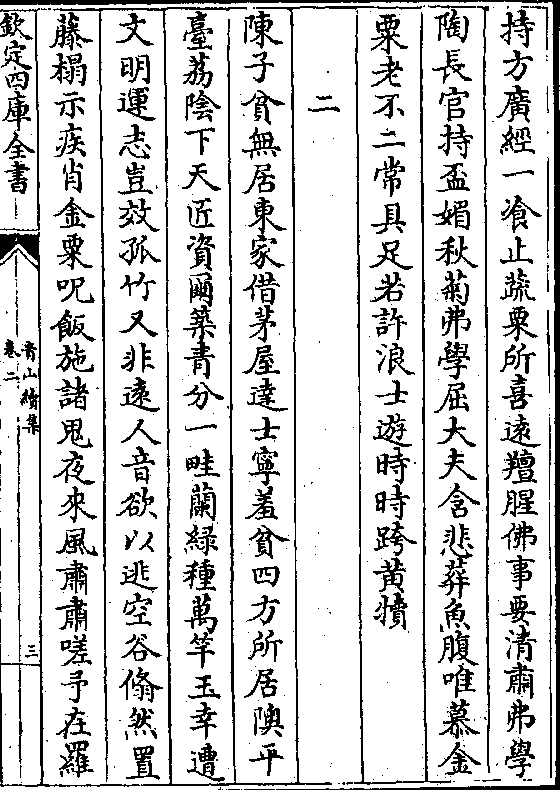 持方廣經一飡止蔬粟所喜遠羶腥佛事要清肅弗學
陶長官持盃媚秋菊弗學屈大夫含悲葬魚腹唯慕金
粟老不二常具足若許浪士遊時時跨黃犢
二
陳子貧無居東家借茅屋達士寧羞貧四方所居隩平
臺荔陰下天匠資爾築青分一畦蘭緑種萬竿玉幸遭
文明運志豈效孤竹又非遠人音欲以逃空谷翛然置
藤榻示疾肖金粟呪飯施諸鬼夜來風肅肅嗟予在羅
欽定四庫全書
青山續集
卷二
三